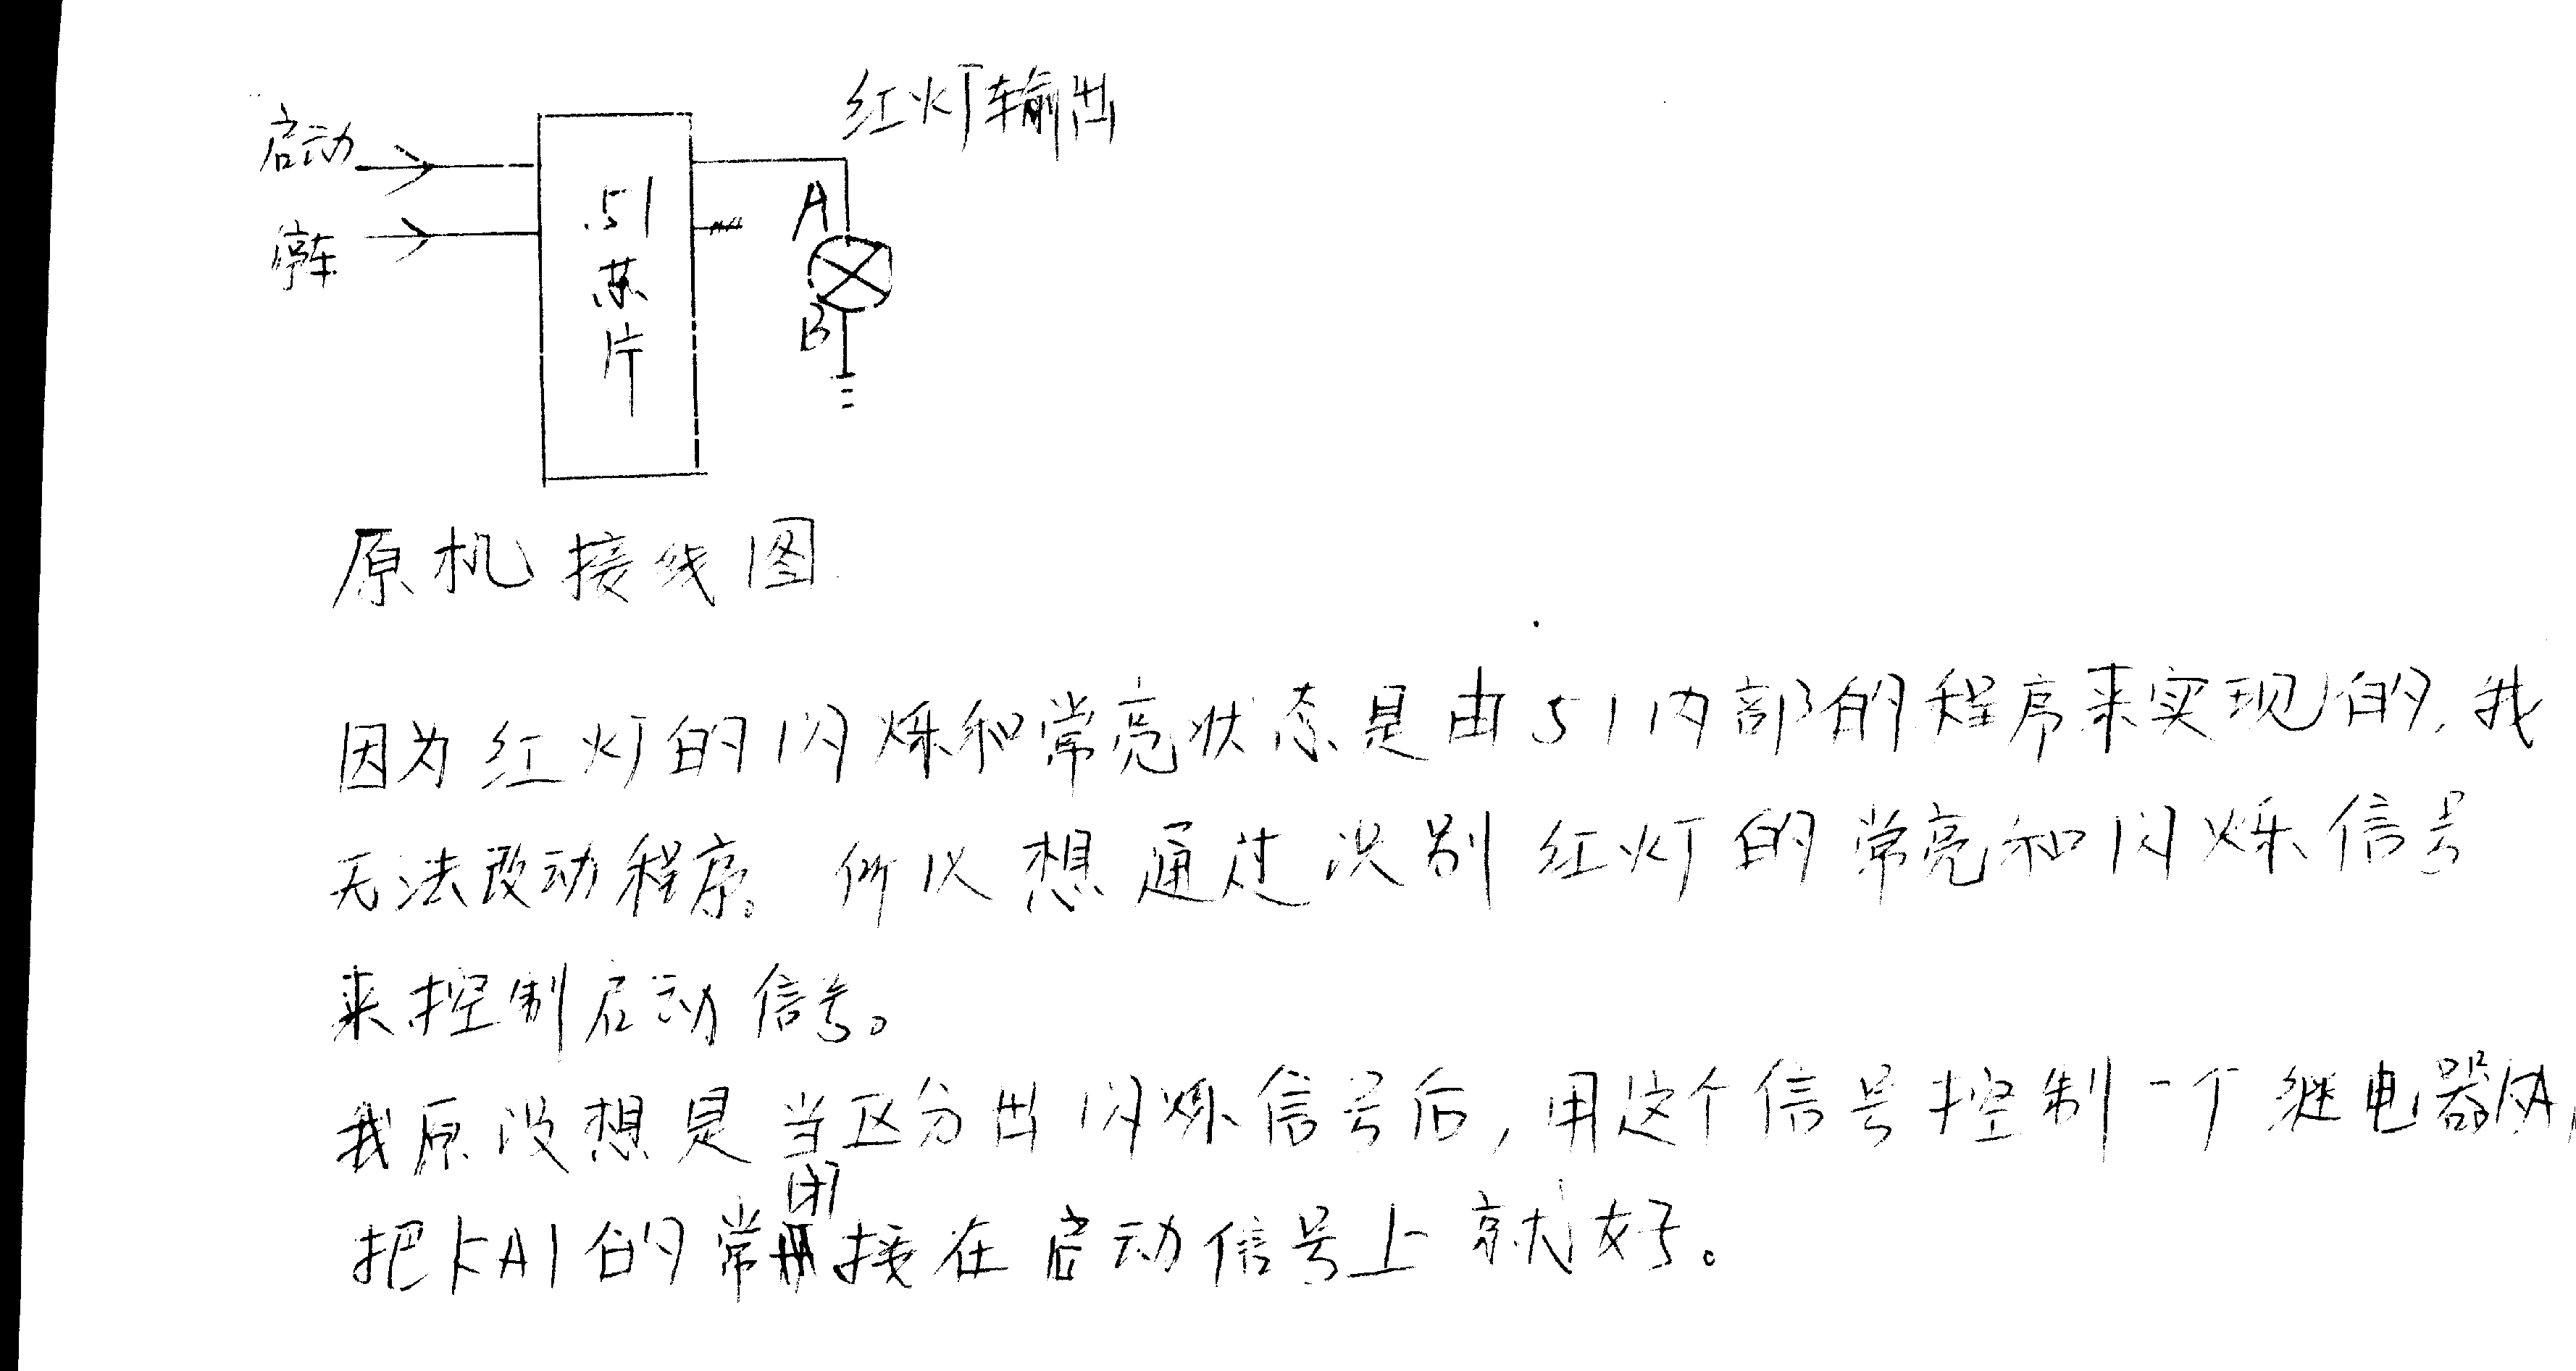 红灯输出
启动
停车
51芯片
A
B
原机接线图
因为红灯的闪烁和常亮状态是由51内部的程序来实现的,我
无法改动程序。所以想通过识别红灯的常亮和闪烁信号
来控制启动信号。
我原设想是当区分出闪烁信号后,用这个信号控制一个继电器KA,
闭
把KA1的常接在启动信号上就好。